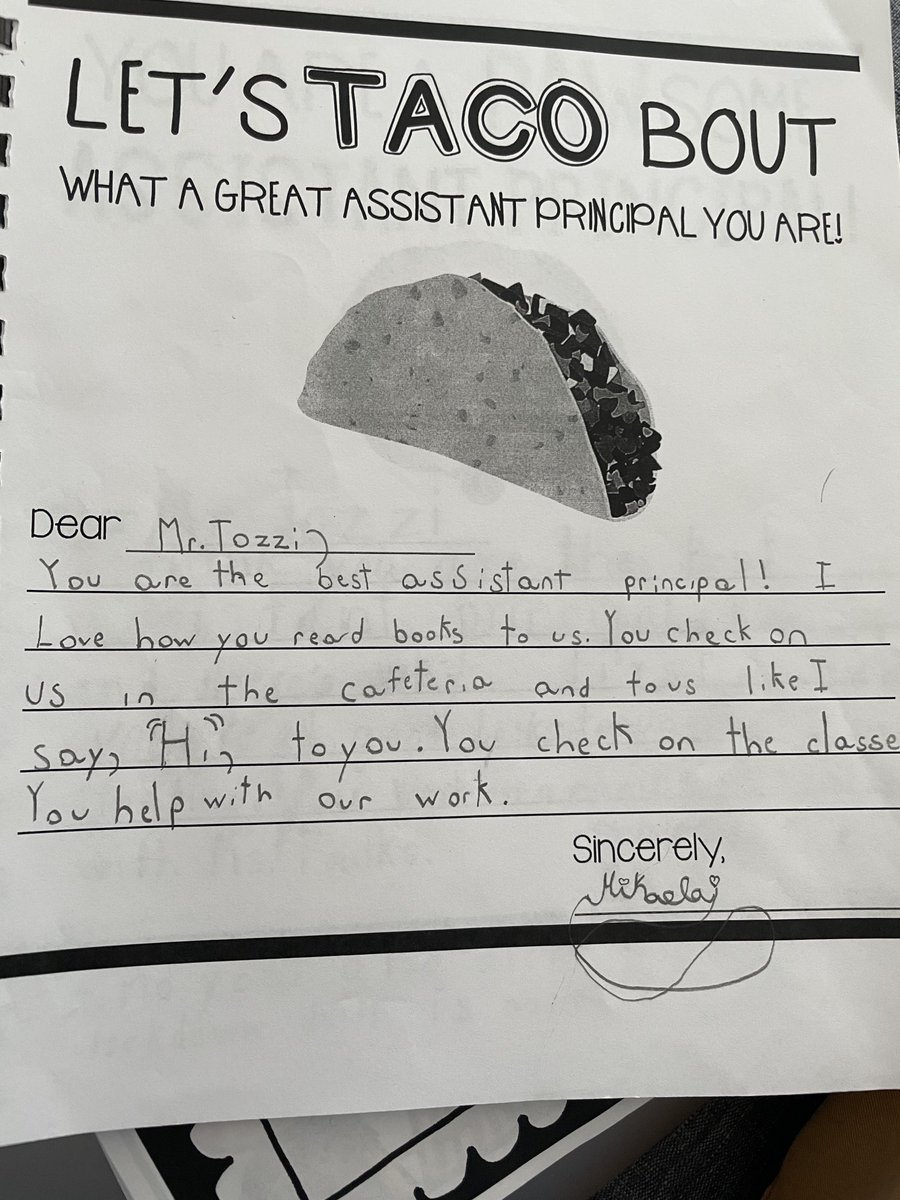 LET'S TACO BOUT
WHAT A GREAT ASSISTANT PRINCIPAL YOU ARE!
Dear Mr. Tozzi,
You are the best assistant principal! I
Love how you read books to us. You check on
us in the cafeteria and to us like I
say, "Hi", to you. You check on the classe
You help with our work.
Sincerely,
Mikaela